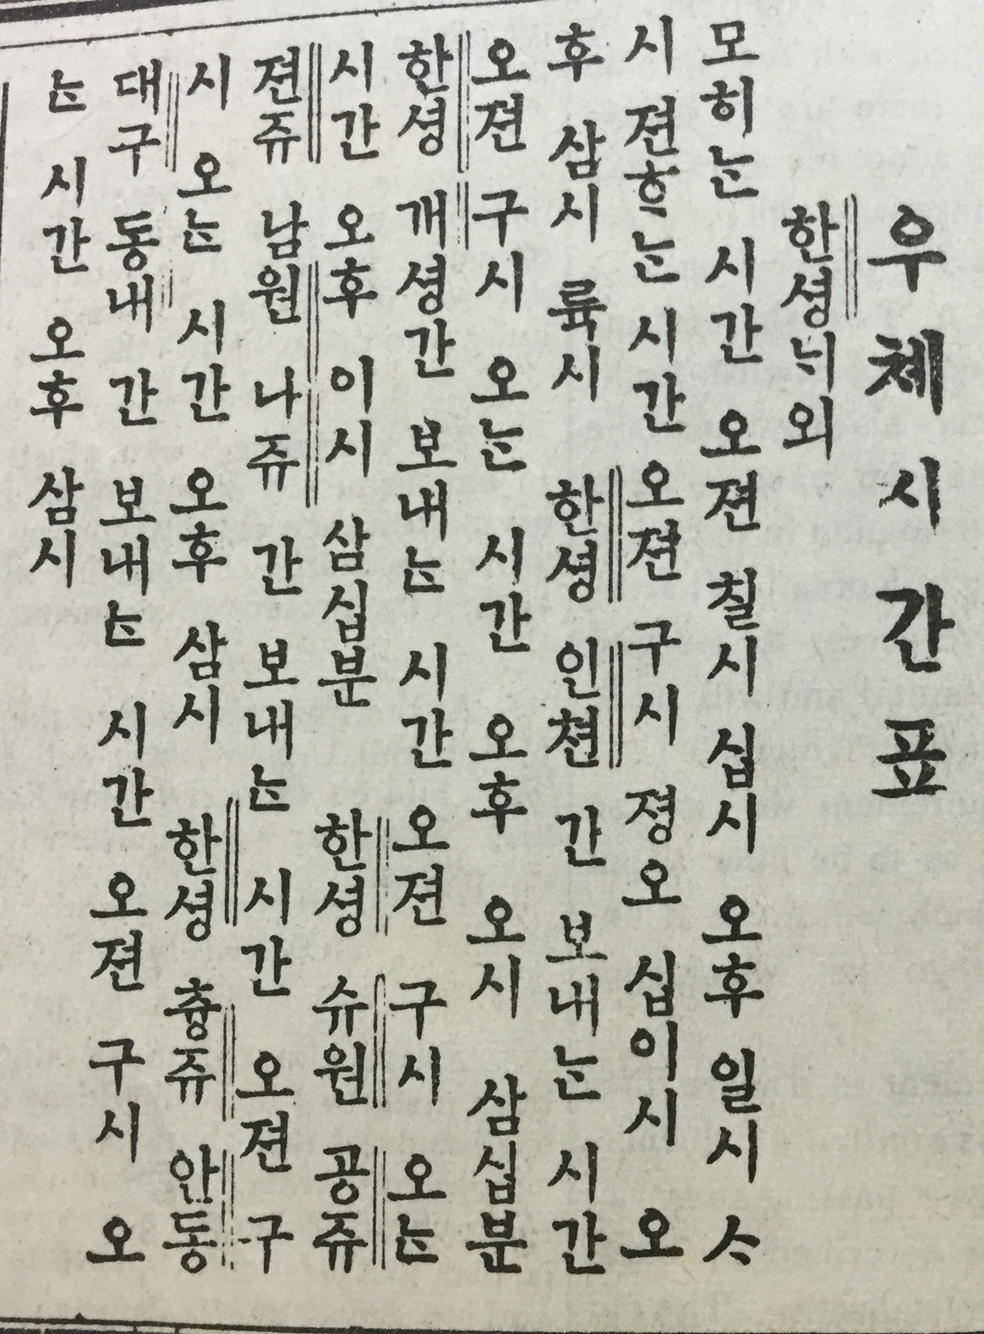 우 쳬 시 간 표
한셩ᄂᆡ외
모히ᄂᆞᆫ 시간 오젼 칠시 십시 오후 일시 ᄉᆞ
시 젼ᄒᆞᄂᆞᆫ 시간 오젼 구시 졍오 십이시 오
후 삼시 륙시 한셩 인쳔 간 보내ᄂᆞᆫ 시간
오젼 구시 오ᄂᆞᆫ 시간 오후 오시 삼십분
한셩 개셩간 보내ᄂᆞᆫ 시간 오젼 구시 오ᄂᆞᆫ
시간 오후 이시 삼십분 한셩 슈원 공쥬
젼쥬 남원 나쥬 간 보내ᄂᆞᆫ 시간 오젼 구
시 오ᄂᆞᆫ 시간 오후 삼시 한셩 츙쥬 안동
대구 동내 간 보내ᄂᆞᆫ 시간 오젼 구시 오
ᄂᆞᆫ 시간 오후 삼시